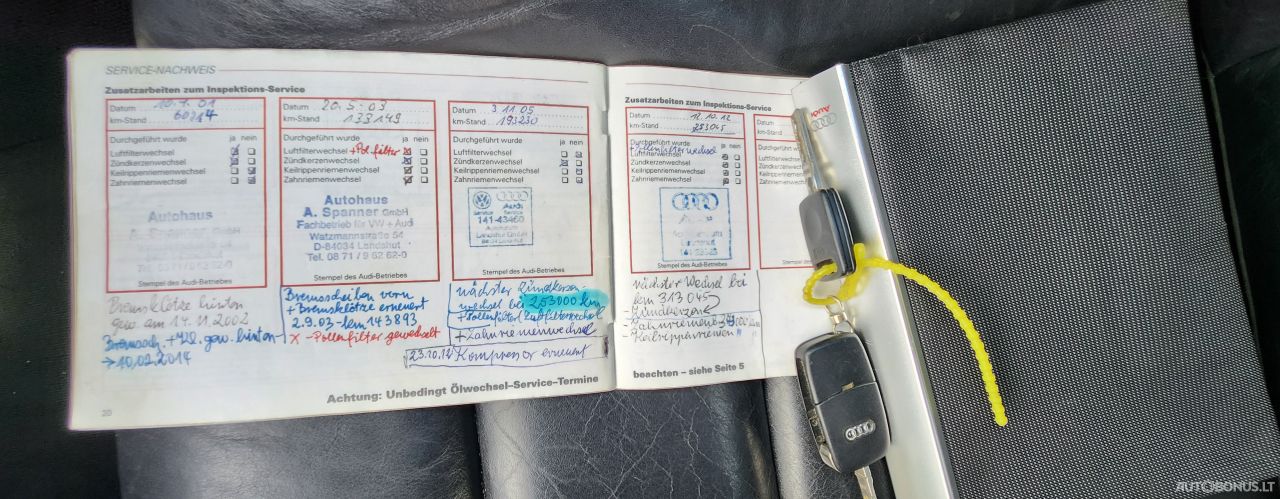 SERVICE-NACHWEIS
Zusatzarbeiten zum Inspektions-Service
Datum 10.7.01
km-Stand 60214
Durchgeführt wurde ja nein
Luftfilterwechsel
Zündkerzenwechsel
Keilrippenriemenwechsel
Zahnriemenwechsel
Autohaus
A. Spanner GmbH
Stempel des Audi-Betriebes
Bremsklötze hinten
gew. am 14.11.2002
Bremssch. + gew. hinten
→ 10.02.2014
20
Datum 20.5.03
km-Stand 138149
Durchgeführt wurde ja nein
Luftfilterwechsel +Pol.filter
Zündkerzenwechsel
Keilrippenriemenwechsel
Zahnriemenwechsel
Autohaus
A. Spanner GmbH
Fachbetrieb für VW + Audi
Watzmannstraße 54
D-84034 Landshut
Tel. 08 71 / 9 62 62-0
Stempel des Audi-Betriebes
Bremsscheiben vorn
+ Bremsklötze erneuert
2.9.03 - km 143893
X -Pollenfilter gewechselt
Datum 3.11.05
km-Stand 193230
Durchgeführt wurde ja nein
Luftfilterwechsel
Zündkerzenwechsel
Keilrippenriemenwechsel
Zahnriemenwechsel
Service
Audi
Service
141-43460
Autozentrum
Landshut GmbH
Stempel des Audi-Betriebes
nächster Zündkerzen-
wechsel bei 253000 km
+Pollenfilter/Luftfilterwechsel
+Zahnriemenwechsel
23.10.12 Kompressor erneuert
Achtung: Unbedingt Ölwechsel-Service-Termine
Zusatzarbeiten zum Inspektions-Service
Datum 12.10.12
km-Stand 253045
Durchgeführt wurde ja nein
+Pollenfilterwechsel
Luftfilterwechsel
Zündkerzenwechsel
Keilrippenriemenwechsel
Zahnriemenwechsel
Stempel des Audi-Betriebes
nächster Wechsel bei
km 313045
- Zündkerzen
- Zahnriemen
- Keilrippenriemen "
beachten – siehe Seite 5
Datum
km-Stand
Durchgeführt
Luftfilterwechsel
Audi
AUTOBONUS.LT